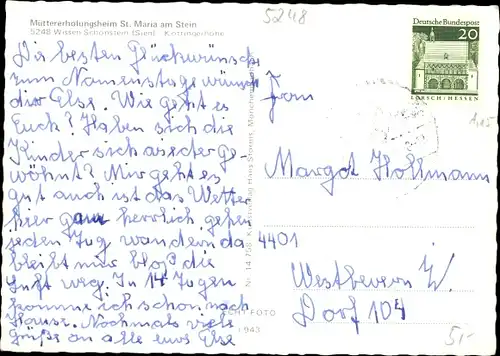 Müttererholungsheim St. Maria am Stein
5248 Wissen-Schönstein (Sieg) Köttingerhöhe
5248
Deutsche Bundespost
20
LORSCH/HESSEN
Die besten Glückwünsche
zum Namenstage wünscht
dir Else. Wie geht es
Euch? Haben sich die
Kinder sich wieder ge-
wöhnt? Mir geht es
gut auch ist das Wetter
hier ganz herrlich gehen
jeden Tag wandern da
bleibt mir bloß die
Luft weg. In 14 Tagen
komme ich schon nach
Hause. Nochmals viele
Grüße an alle eure Else
ECHT FOTO
Frau
Margot Hollmann
4401
Westbevern W.
Dorf 104
5,-